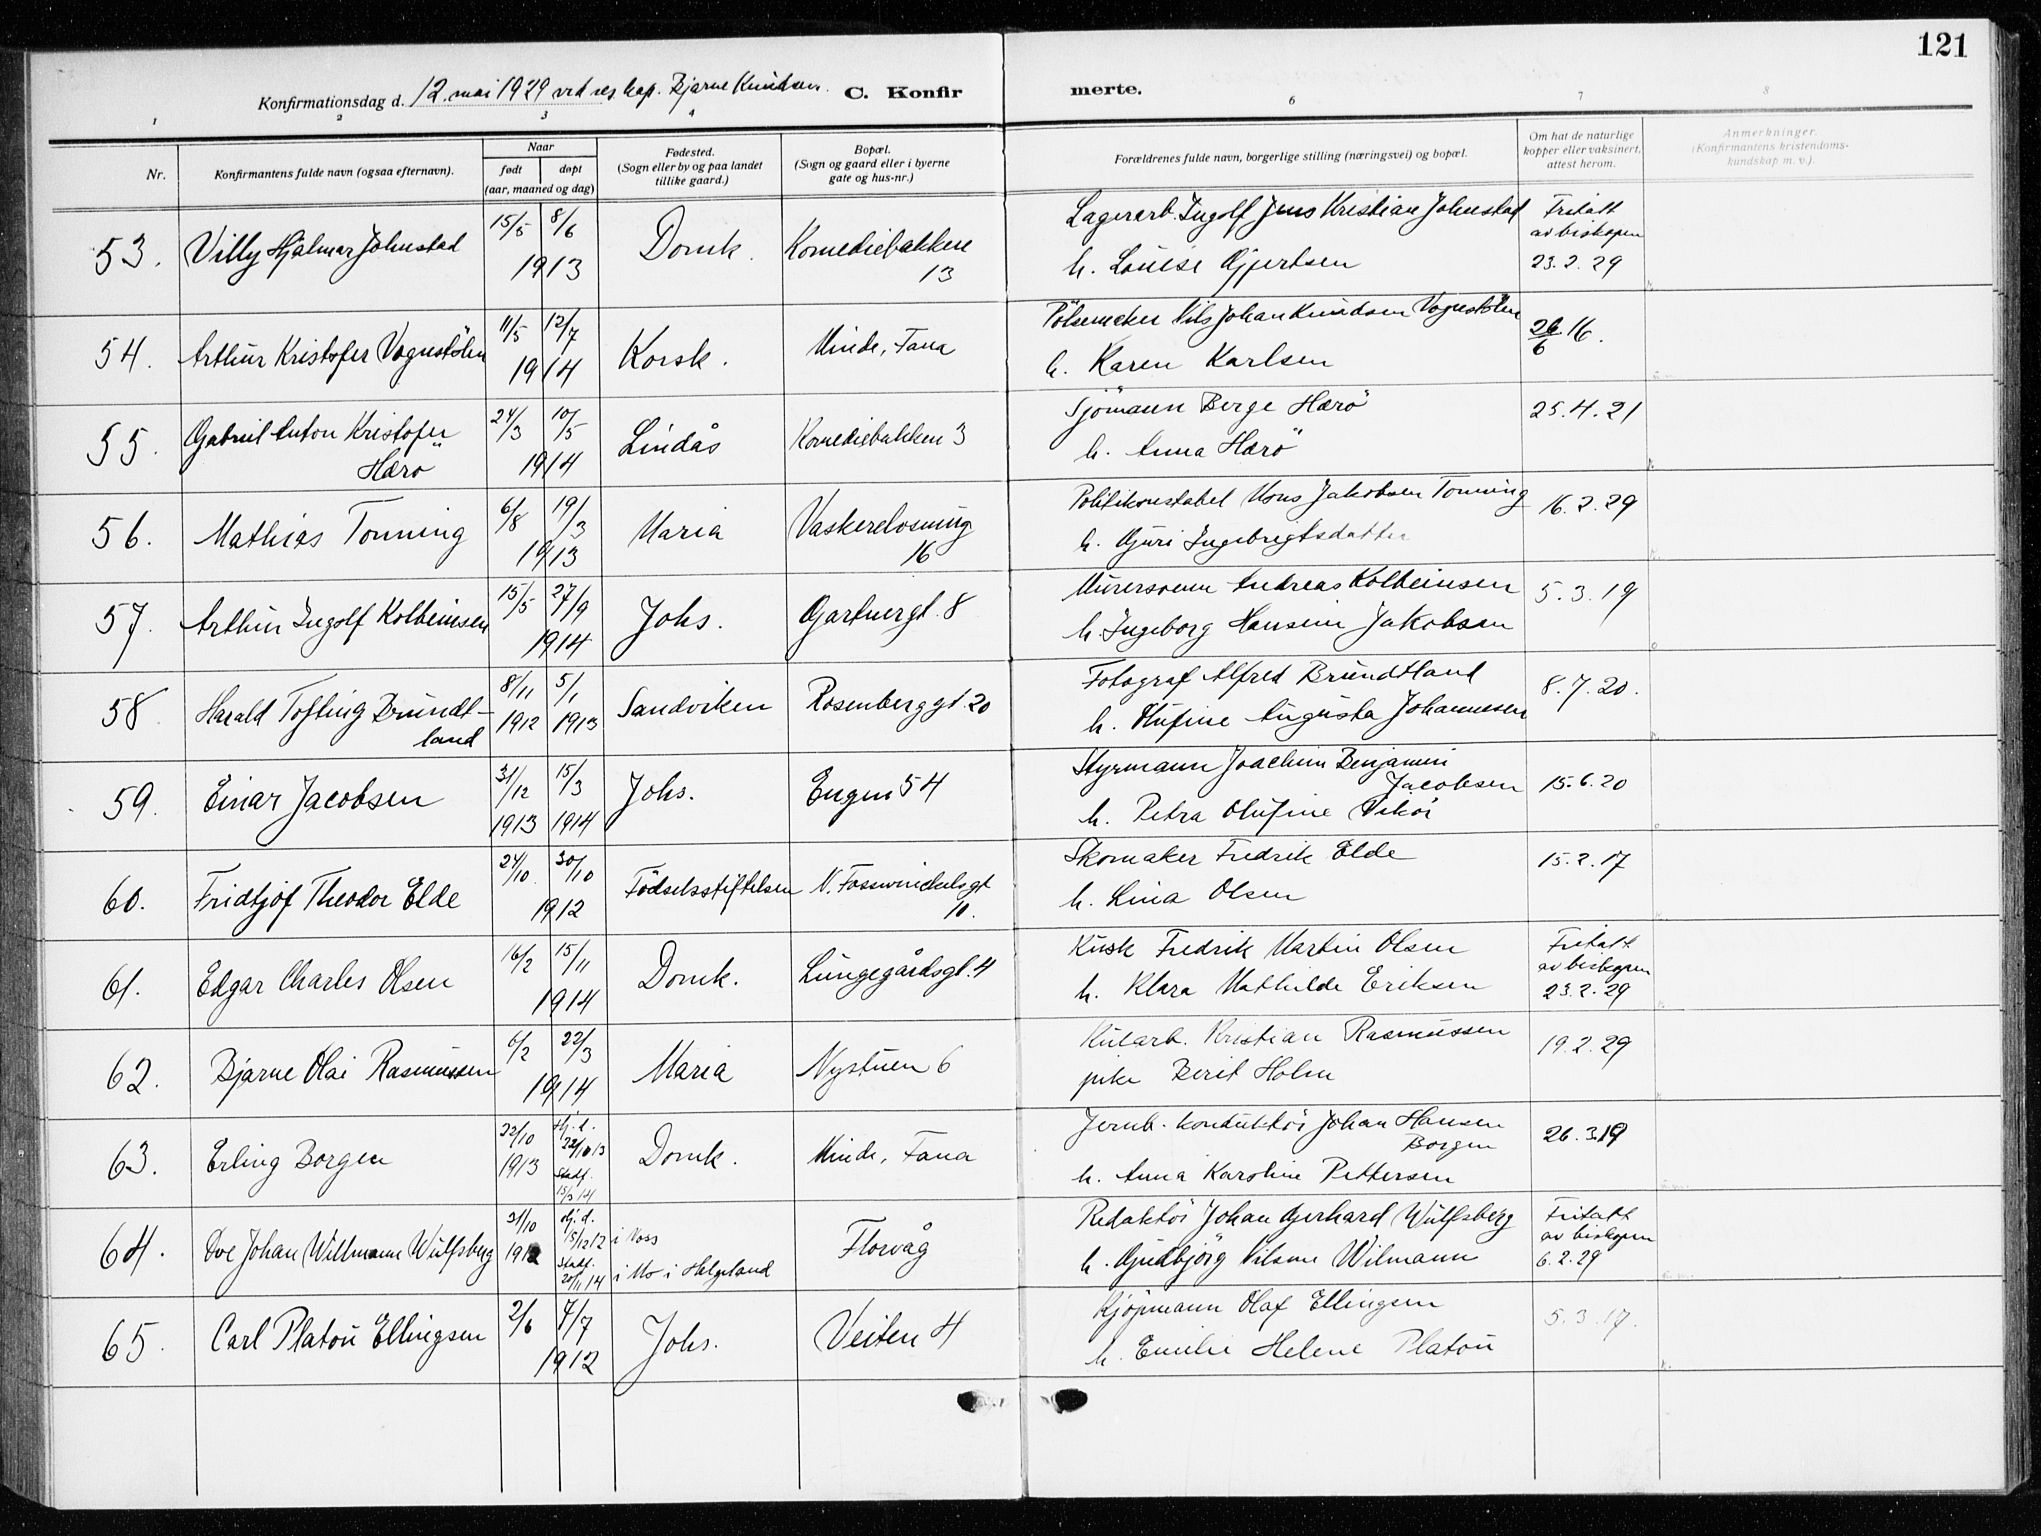 121
Konfirmationsdag d. 12. mai 1929 ved res kap. Bjarne Knudsen. C. Konfir merte.
1 2 3 4 6 7 8
Nr. Konfirmantens fulde navn (ogsaa efternavn). Naar født døpt (aar, maaned og dag) Fødested. (Sogn eller by og paa landet tillike gaard.) Bopæl. (Sogn og gaard eller i byerne gate og hus-nr.) Forældrenes fulde navn, borgerlige stilling (næringsvei) og bopæl. Om hat de naturlige kopper eller vaksinert, attest herom. Anmerkninger. (Konfirmantens kristendoms-kundskap m. v.)
53. Villy Hjalmar Johnstad 15/5 8/6 1913 Domk. Komediebakken 13 Lagerarb. Ingolf Jens Kristian Johnstad Fritatt av biskopen 23.2.29
h. Louise Gjertsen
54. Arthur Kristofer Vognstölen 11/5 12/7 1914 Korsk. Minde, Fana Pölsemaker Nils Johan Knudsen Vognstölen 26/6 16.
h. Karen Karlsen
55. Gabriel Anton Kristofer Harö 24/3 10/5 1914 Lindås Komediebakken 3 Sjömann Berge Harö 25.4.21
h. Anna Harö
56. Mathias Tonning 6/8 19/3 1913 Maria Vaskerelvsmug 16 Politikonstabel Mons Jakobsen Tonning 16.2.29
h. Guri Ingebrigtsdatter
57. Arthur Ingolf Kolbeinsen 15/5 27/9 1914 Johs. Gartnergt. 8 Murersvenn Andreas Kolbeinsen 5.3.19
h. Ingeborg Hansine Jakobsen
58. Harald Tofting Brundt-land 8/11 1912 5/1 1913 Sandviken Rosenberggt. 20 Fotograf Alfred Brundtland 8.7.20.
h. Olufine Augusta Johannesen
59. Einar Jacobsen 31/12 1913 15/3 1914 Johs. Engen 54 Styrmann Joachim Benjamin Jacobsen 15.6.20
h. Petra Olufine Vikör
60. Fridtjof Theodor Elde 24/10 30/10 1912 Födselsstiftelsen N. Fosswinckelsgt 10. Skomaker Fredrik Elde 15.2.17
h. Lina Olsen
61. Edgar Charles Olsen 16/2 15/11 1914 Domk. Lungegårdsgt. 4 Kusk Fredrik Martin Olsen Fritatt av biskopen 23.2.29
h. Klara Mathilde Eriksen
62. Bjarne Olai Rasmussen 6/2 22/3 1914 Maria Nystuen 6 Kularb. Kristian Rasmussen 19.2.29
pike Berit Holm
63. Erling Borgen 22/10 1913 Hj.d. 22/10 13 Stadf. 15/3 14 Domk. Minde, Fana Jernb. konduktör Johan Hansen Borgen 26.3.19
h. Anna Karoline Pettersen
64. Ove Johan Willmann Wulfsberg 31/10 1912 Hj.d. 15/12 12 i Voss Stadf. 20/11 14 i Mo i Helgeland Florvåg Redaktör Johan Gerhard Wulfsberg Fritatt av biskopen 6.2.29
h. Gudbjörg Nilsine Wilmann
65. Carl Platou Ellingsen 2/6 7/7 1912 Johs. Veiten 4 Kjöpmann Olaf Ellingsen 5.3.17.
h. Emilie Helene Platou